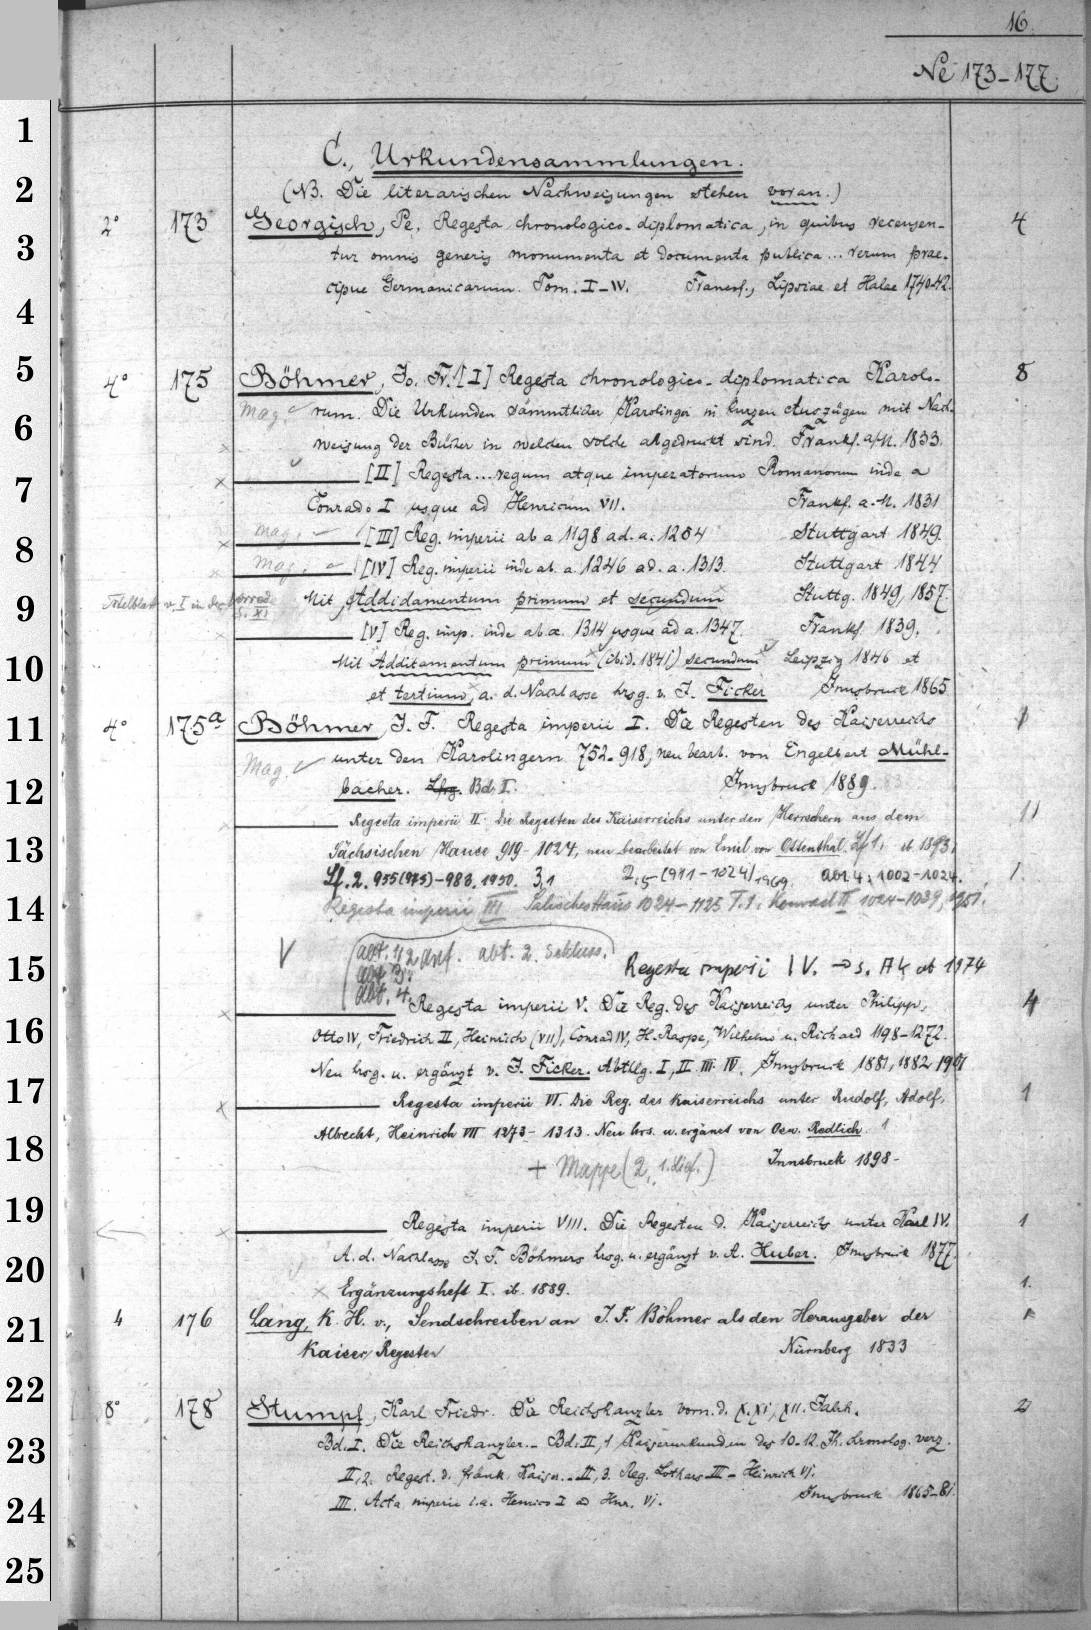 16.
№ 173-177
C., Urkundensammlungen.
(NB. Die literarischen Nachweisungen stehen voran.)
2° 173 Georgisch, Pe. Regesta chronologico-diplomatica, in quibus recensen- 4
tur omnis generis monumenta et documenta publica... rerum prae-
cipue Germanicarum. Tom. I-IV. Francof., Lipsiae et Halae 1740-42.
4° 175 Böhmer, Jo. Fr. [I] Regesta chronologico-diplomatica Karolo- 8
Mag. rum. Die Urkunden sämmtlicher Karolinger in kurzen Auszügen mit Nach-
weisung der Bücher in welchen solche abgedruckt sind. Frankf. a/M. 1833.
x [II] Regesta... regum atque imperatorum Romanorum inde a
Conrado I usque ad Henricum VII. Frankf. a.M. 1831
x Mag. [III] Reg. imperii ab a 1198 ad. a. 1254 Stuttgart 1849.
x Mag. [IV] Reg. imperii inde ab. a. 1246 ad. a. 1313. Stuttgart 1844
Titelblatt v. I in S. XI Mit Addidamentum primum et secundum Stuttg. 1849, 1857.
x [V] Reg. imp. inde ab. a. 1314 usque ad a. 1347. Frankf. 1839.
Mit Additamentum primum (ibid. 1841) secundum Leipzig 1846 et
et tertium, a. d. Nachlasse hrsg. v. J. Ficker Innsbruck 1865
4° 175a Böhmer, J. F. Regesta imperii I. Die Regesten des Kaiserreichs 1
Mag. unter den Karolingern 752-918, neu bearb. von Engelbert Mühl-
bacher. Lfrg. Bd. I. Innsbruck 1889.
x Regesta imperii II. Die Regesten des Kaiserreichs unter den Herrschern aus dem 11
Sächsischen Hause 919-1024, neu bearbeitet von Emil von Ottenthal. Lf 1. ib 1893.
Lf. 2. 955(973)-983. 1950. 3,1 2,5 - (911-1024) 1969. Abt. 4: 1002-1024. 1.
Regesta imperii III Salisches Haus 1024-1125 T. 1. Konrad II 1024-1039, 1951.
V (abt. 1,2 anf. abt. 2. Schluss.)
abt 3.
abt. 4. Regesta imperii IV. → s. AK ab 1974
x Regesta imperii V. Die Reg. des Kaiserreichs unter Philipp, 4
Otto IV, Friedrich II, Heinrich (VII), Conrad IV, H. Raspe, Wilhelm u. Richard 1198-1272.
Neu hrsg. u. ergänzt v. J. Ficker. Abtlg. I, II. III. IV. Innsbruck 1881, 1882 1901
x Regesta imperii VI. Die Reg. des Kaiserreichs unter Rudolf, Adolf, 1
Albrecht, Heinrich VII 1273-1313. Neu hrs. u. ergänzt von Osw. Redlich. 1
+ Mappe (2, 1. Lief.) Innsbruck 1898-
x Regesta imperii VIII. Die Regesten d. Kaiserreichs unter Karl IV. 1
A. d. Nachlasse J. F. Böhmers hrsg. u. ergänzt v. A. Huber. Innsbruck 1877.
x Ergänzungsheft I. ib. 1889. 1.
4 176 Lang, K. H. v., Sendschreiben an J. F. Böhmer als den Herausgeber der 1
Kaiser Regesten Nürnberg 1833
8° 178 Stumpf, Karl Friedr. Die Reichskanzler vorn. d. X. XI, XII. Jahrh. 2
Bd. I. Die Reichskanzler. - Bd. II, 1 Kaiserurkunden des 10-12. Jh. chronolog. verz.
II, 2. Regest. d. fränk. Kaiser. - II, 3. Reg. Lothars III - Heinrich VI.
III. Acta imperii i.a. Henrico I ad Hnr. VI. Innsbruck 1865-81.
1
2
3
4
5
6
7
8
9
10
11
12
13
14
15
16
17
18
19
20
21
22
23
24
25